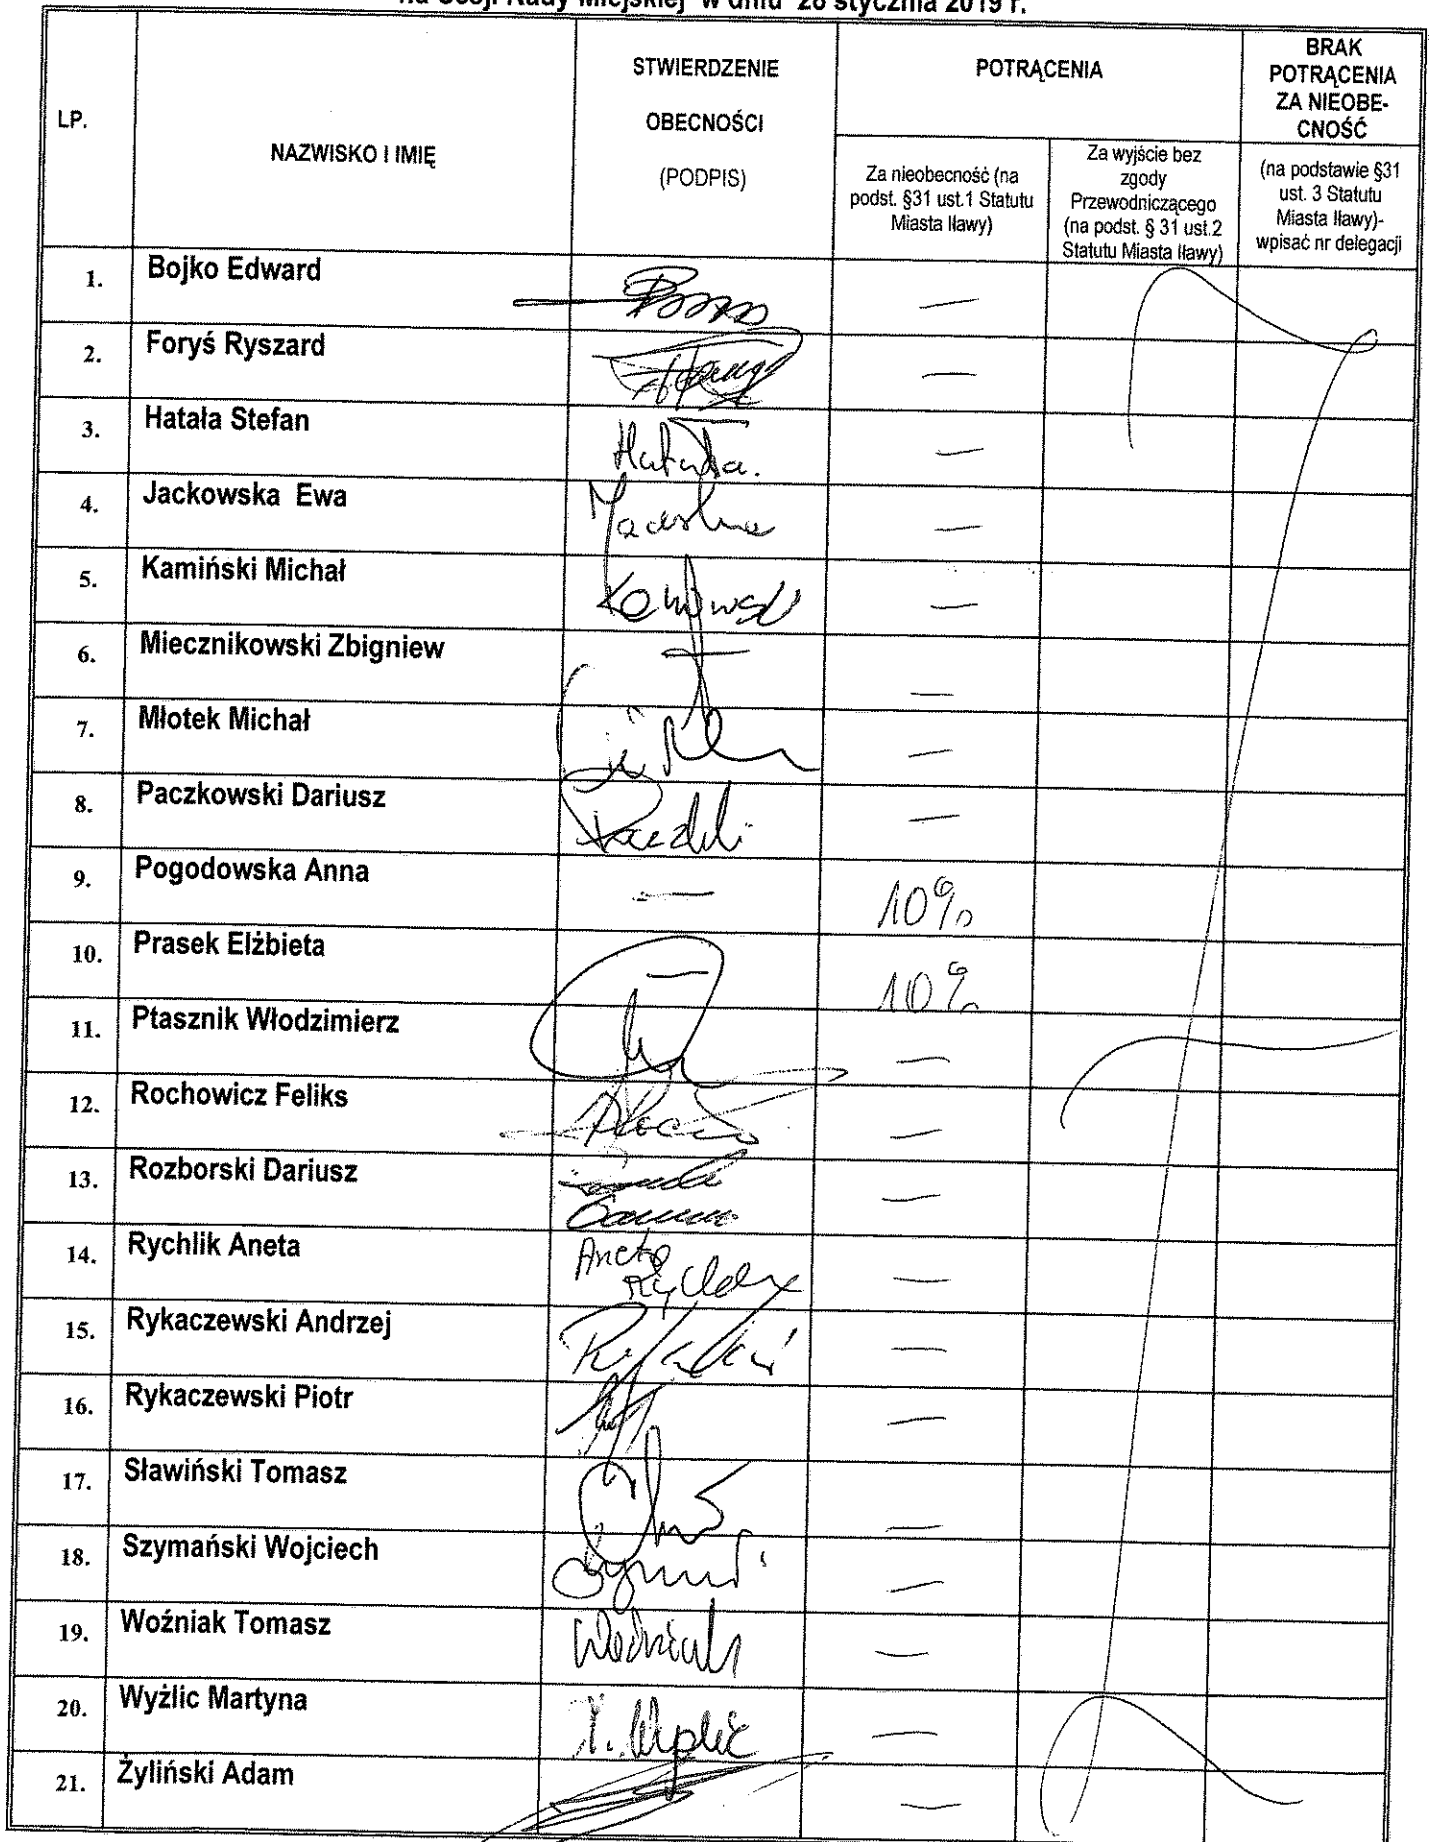 na Sesji Rady Miejskiej w dniu 28 stycznia 2019 r.
LP.
NAZWISKO I IMIĘ
STWIERDZENIE
OBECNOŚCI
(PODPIS)
POTRĄCENIA
BRAK
POTRĄCENIA
ZA NIEOBE-
CNOŚĆ
Za nieobecność (na
podst. §31 ust.1 Statutu
Miasta Iławy)
Za wyjście bez
zgody
Przewodniczącego
(na podst. § 31 ust.2
Statutu Miasta Iławy)
(na podstawie §31
ust. 3 Statutu
Miasta Iławy)-
wpisać nr delegacji
1. Bojko Edward —
2. Foryś Ryszard —
3. Hatała Stefan Hatała. —
4. Jackowska Ewa —
5. Kamiński Michał —
6. Miecznikowski Zbigniew — —
7. Młotek Michał —
8. Paczkowski Dariusz —
9. Pogodowska Anna — 10%
10. Prasek Elżbieta — 10%
11. Ptasznik Włodzimierz —
12. Rochowicz Feliks —
13. Rozborski Dariusz —
14. Rychlik Aneta Aneta Rychlik —
15. Rykaczewski Andrzej —
16. Rykaczewski Piotr —
17. Sławiński Tomasz —
18. Szymański Wojciech —
19. Woźniak Tomasz Woźniak —
20. Wyżlic Martyna —
21. Żyliński Adam —